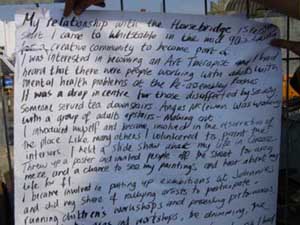 My relationship with the Horsebridge is
since I came to Whitstable in the mid 90s
for a creative community to become part of
I was interested in becoming an Art Therapist and I had
heard that there were people working with adults with
mental health problems at the Assembly Rooms
It was a drop in centre for those unsupported by society
Someone served tea downstairs Angus was working
with a group of adults upstairs - Making Art
I introduced myself and became involved in the
the place. Like many others I volunteered to paint the
interiors. I held a slide show about my life in Greece
Threw up a poster and invited people off the street to
meze and a chance to see my paintings and hear about my
life
I became involved in putting up exhibitions at
and did my share of rallying artists to participate -
running children's workshops and presenting performances
workshops, be drumming, the